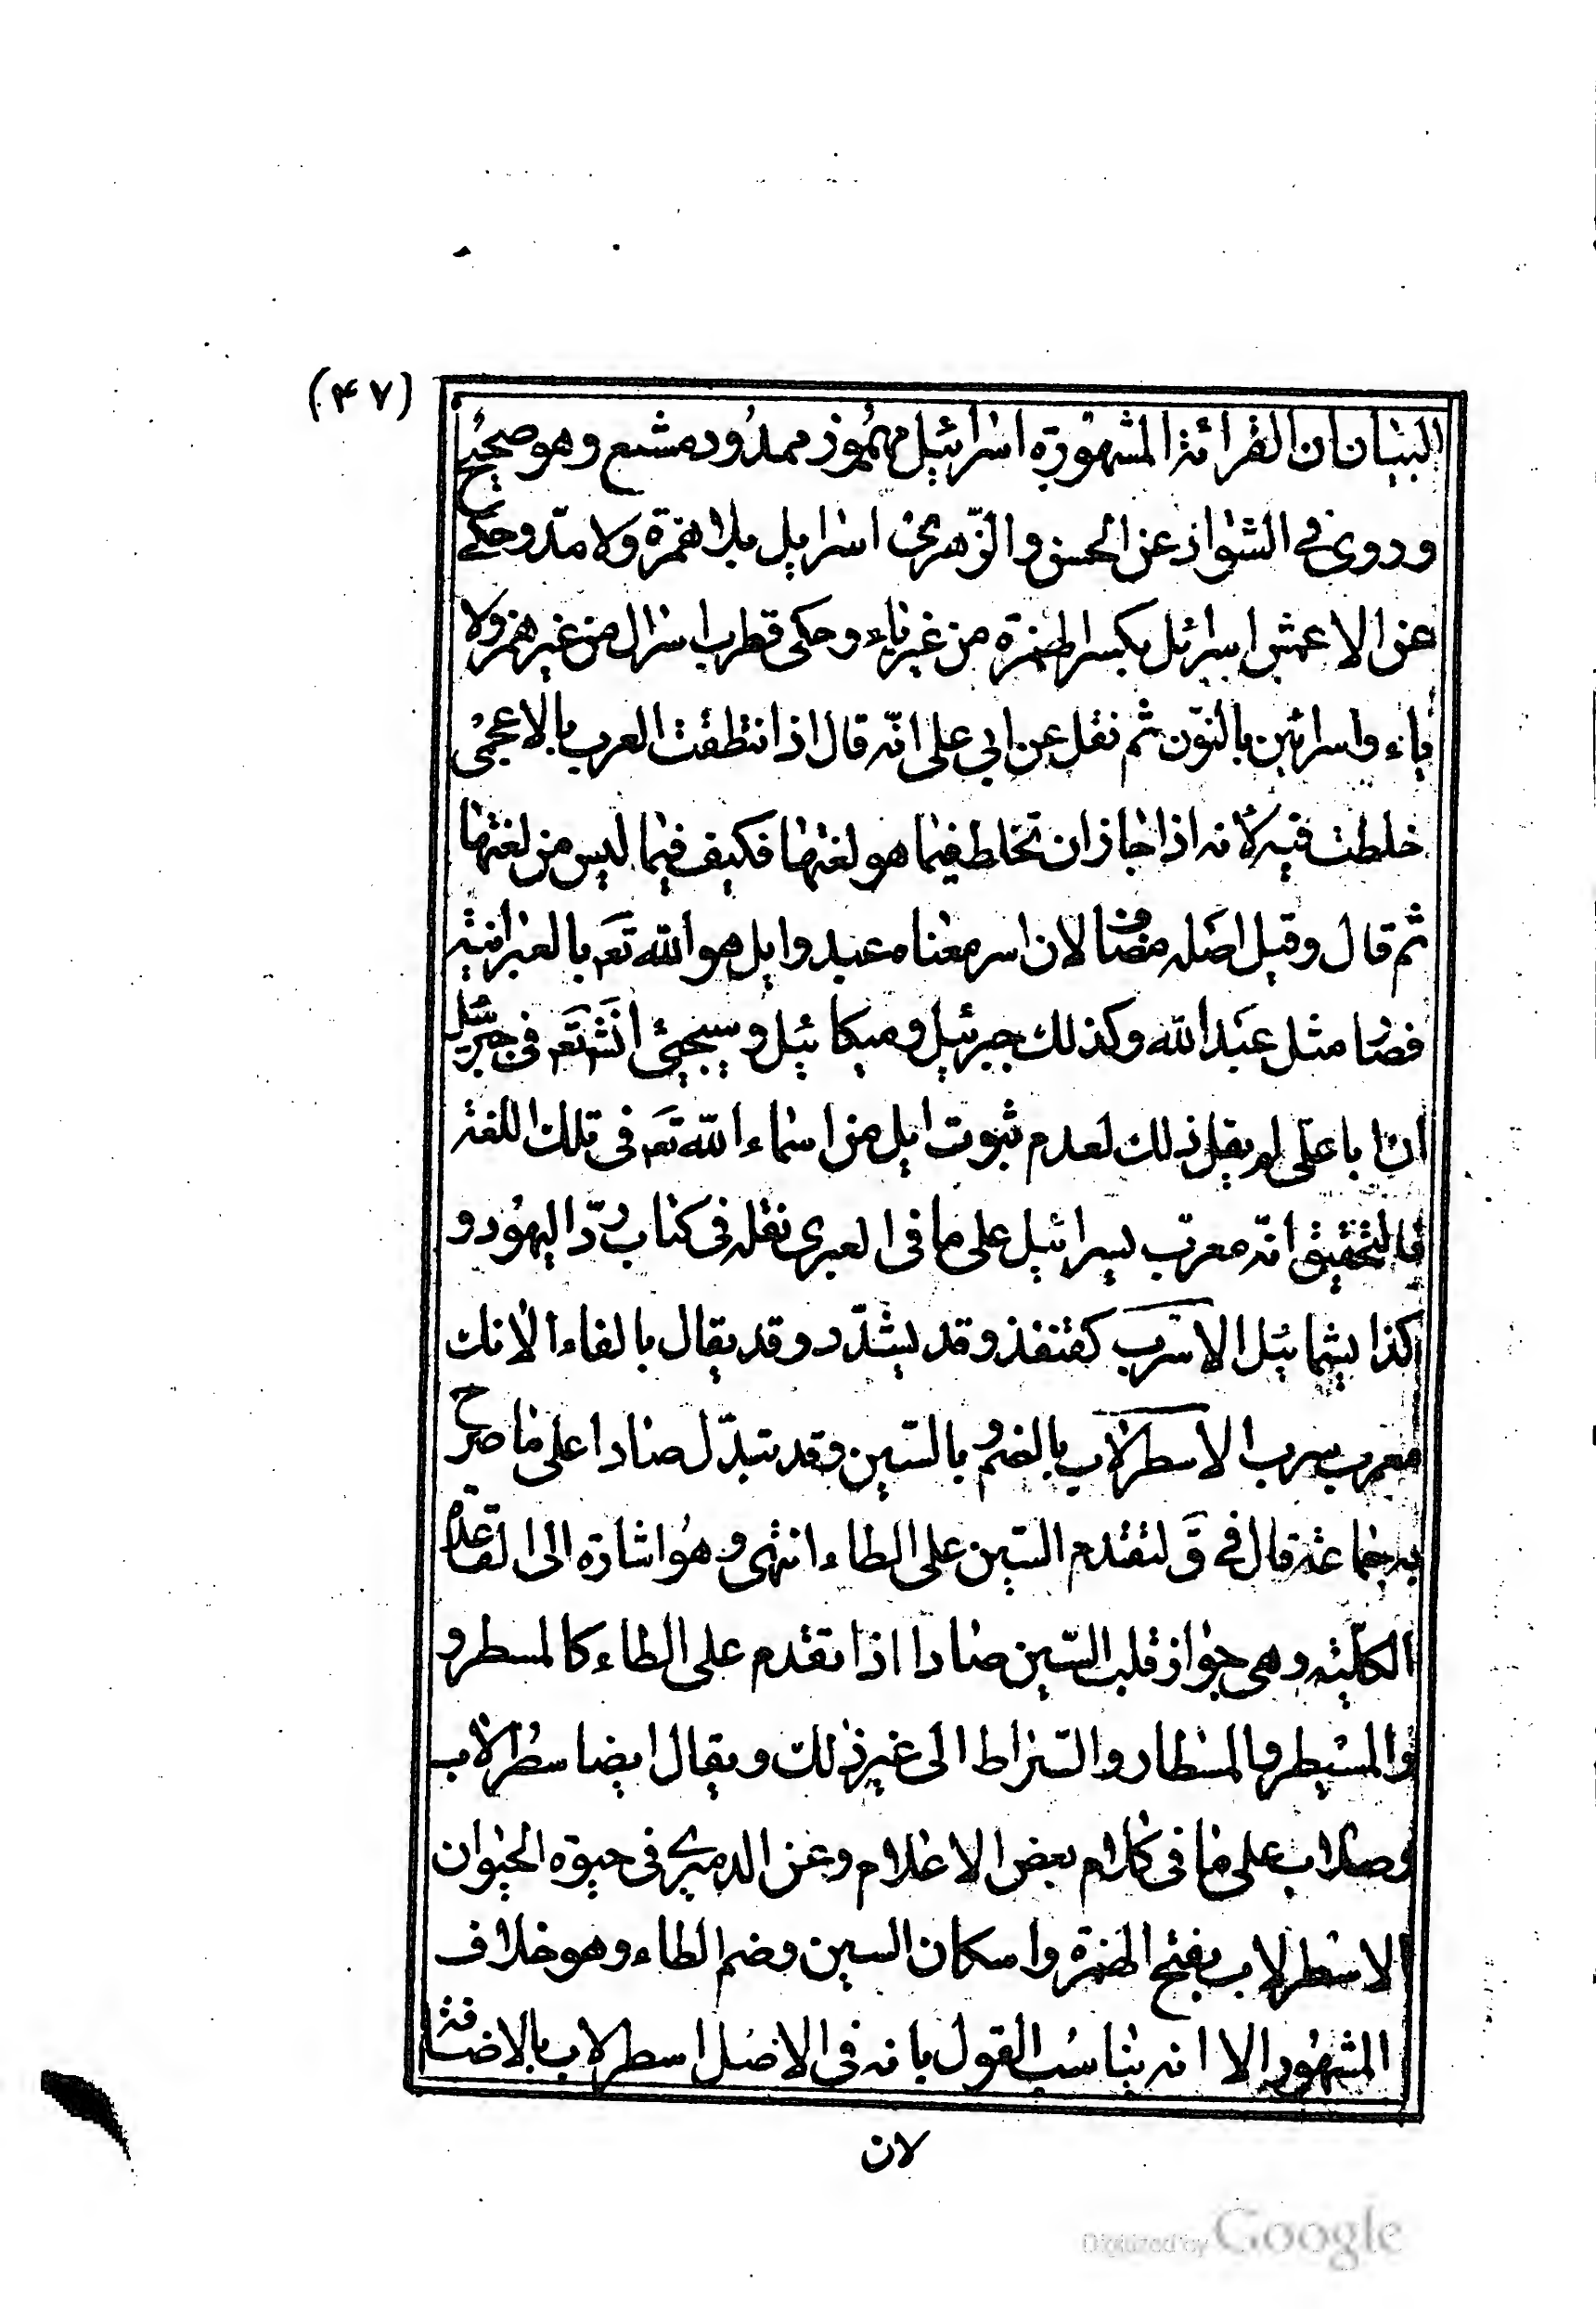 (۴۷)
البيان ان القرائة المشهورة اسرائيل مهموز ممدود مشبع وهو صحيح
وروى فى الشواذ عن الحسن والزّهرى اسرايل بلا همزة ولا مدّ وحكى
عن الاعمش اسرائل بكسر الهمزة من غير ياء وحكى قطرب اسرال من غير همز ولا
ياء واسرائين بالنّون ثم نقل عن ابى على انّه قال اذا نتطقت العرب بالاعجمى
خلطت فيه لأنه اذا جاز ان تخلط فيما هو لغتها فكيف فيما ليس من لغتها
ثم قال وقيل اصله مضاف لان اسر معناه عبد وايل هو الله تعه بالعبرانية
فصار مثل عبد الله وكذلك جبرئيل وميكائيل وسيجيئ انشه تعه فى جبرئيل
ان ابا على لم يقل ذلك لعدم ثبوت ايل من اسماء الله تعه فى تلك اللغة
فالتحقيق انّه معرّب يسرائيل على ما فى العبرى نقله فى كتاب ردّ اليهود و
كذا يشمائيل الاسرب كقنفذ وقد يشدّد وقد يقال بالفاء الانك
معرب سرب الاسطرلاب بالضم و بالسّين وقد تبدّل صادا على ما صرّح
به جماعة قال فى ق لتقدم السّين على الطاء انتهى وهو اشارة الى القاعدة
الكليّة وهى جواز قلب السّين صادا اذا تقدم على الطاء كالمسطر و
والمسيطر والمسطار والسّراط الى غير ذلك ويقال ايضا سطرلاب
وصلاب على ما فى كلام بعض الاعلام وعن الدميرى فى حيوة الحيوان
الاسطرلاب بفتح الهمزة واسكان السين وضم الطاء وهو خلاف
المشهور الا انه يناسب القول بانه فى الاصل اسطرلاب بالاضافة
لان
Digitized by Google